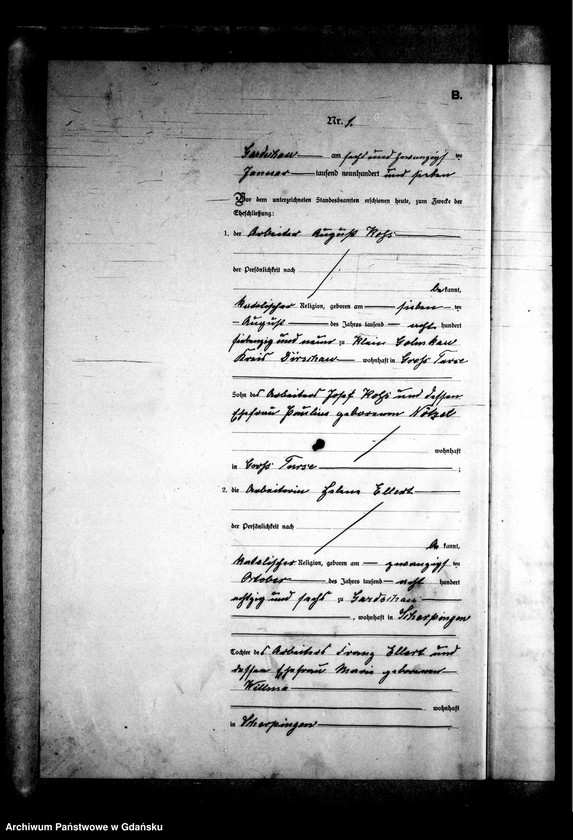 B.
Nr. 1.
Gardschau am sechs und zwanzigsten
Januar tausend neunhundert und sieben
Vor dem unterzeichneten Standesbeamten erschienen heute, zum Zwecke der
Eheschließung:
1. der Arbeiter August Kohs
der Persönlichkeit nach
be kannt,
katolischer Religion, geboren am sieben ten
August des Jahres tausend acht hundert
siebenzig und neun zu Klein Golmkau
Kreis Dirschau wohnhaft in Gross Turse
Sohn des Arbeiters Josef Kohs und dessen
Ehefrau Pauline geborenen Nötzel
wohnhaft
in Gross Turse ;
2. die Arbeiterin Helene Ellert
der Persönlichkeit nach
be kannt,
katolischer Religion, geboren am zwanzigsten
October des Jahres tausend acht hundert
achtzig und sechs zu Gardschau
, wohnhaft in Scherpingen
Tochter des Arbeiters Franz Ellert und
dessen Ehefrau Marie geborenen
wohnhaft
in Scherpingen
Archiwum Państwowe w Gdańsku